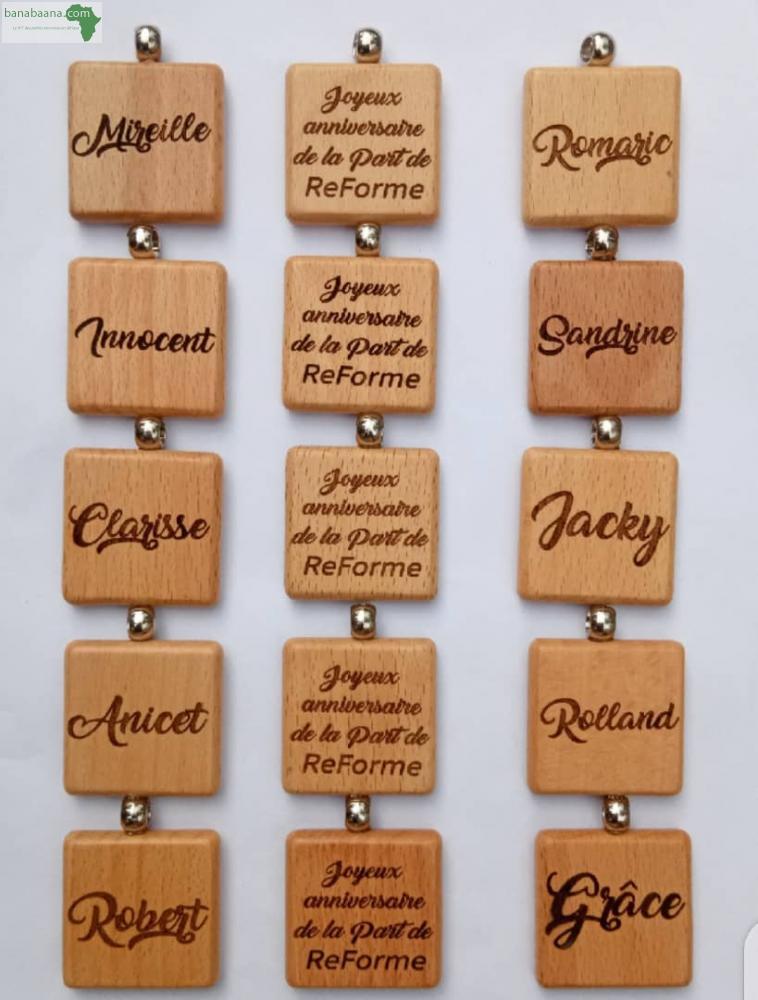 banabaana.com
Mireille
Joyeux
anniversaire
de la Part de
ReForme
Romaric
Innocent
Joyeux
anniversaire
de la Part de
ReForme
Sandrine
Clarisse
Joyeux
anniversaire
de la Part de
ReForme
Jacky
Anicet
Joyeux
anniversaire
de la Part de
ReForme
Rolland
Robert
Joyeux
anniversaire
de la Part de
ReForme
Grâce